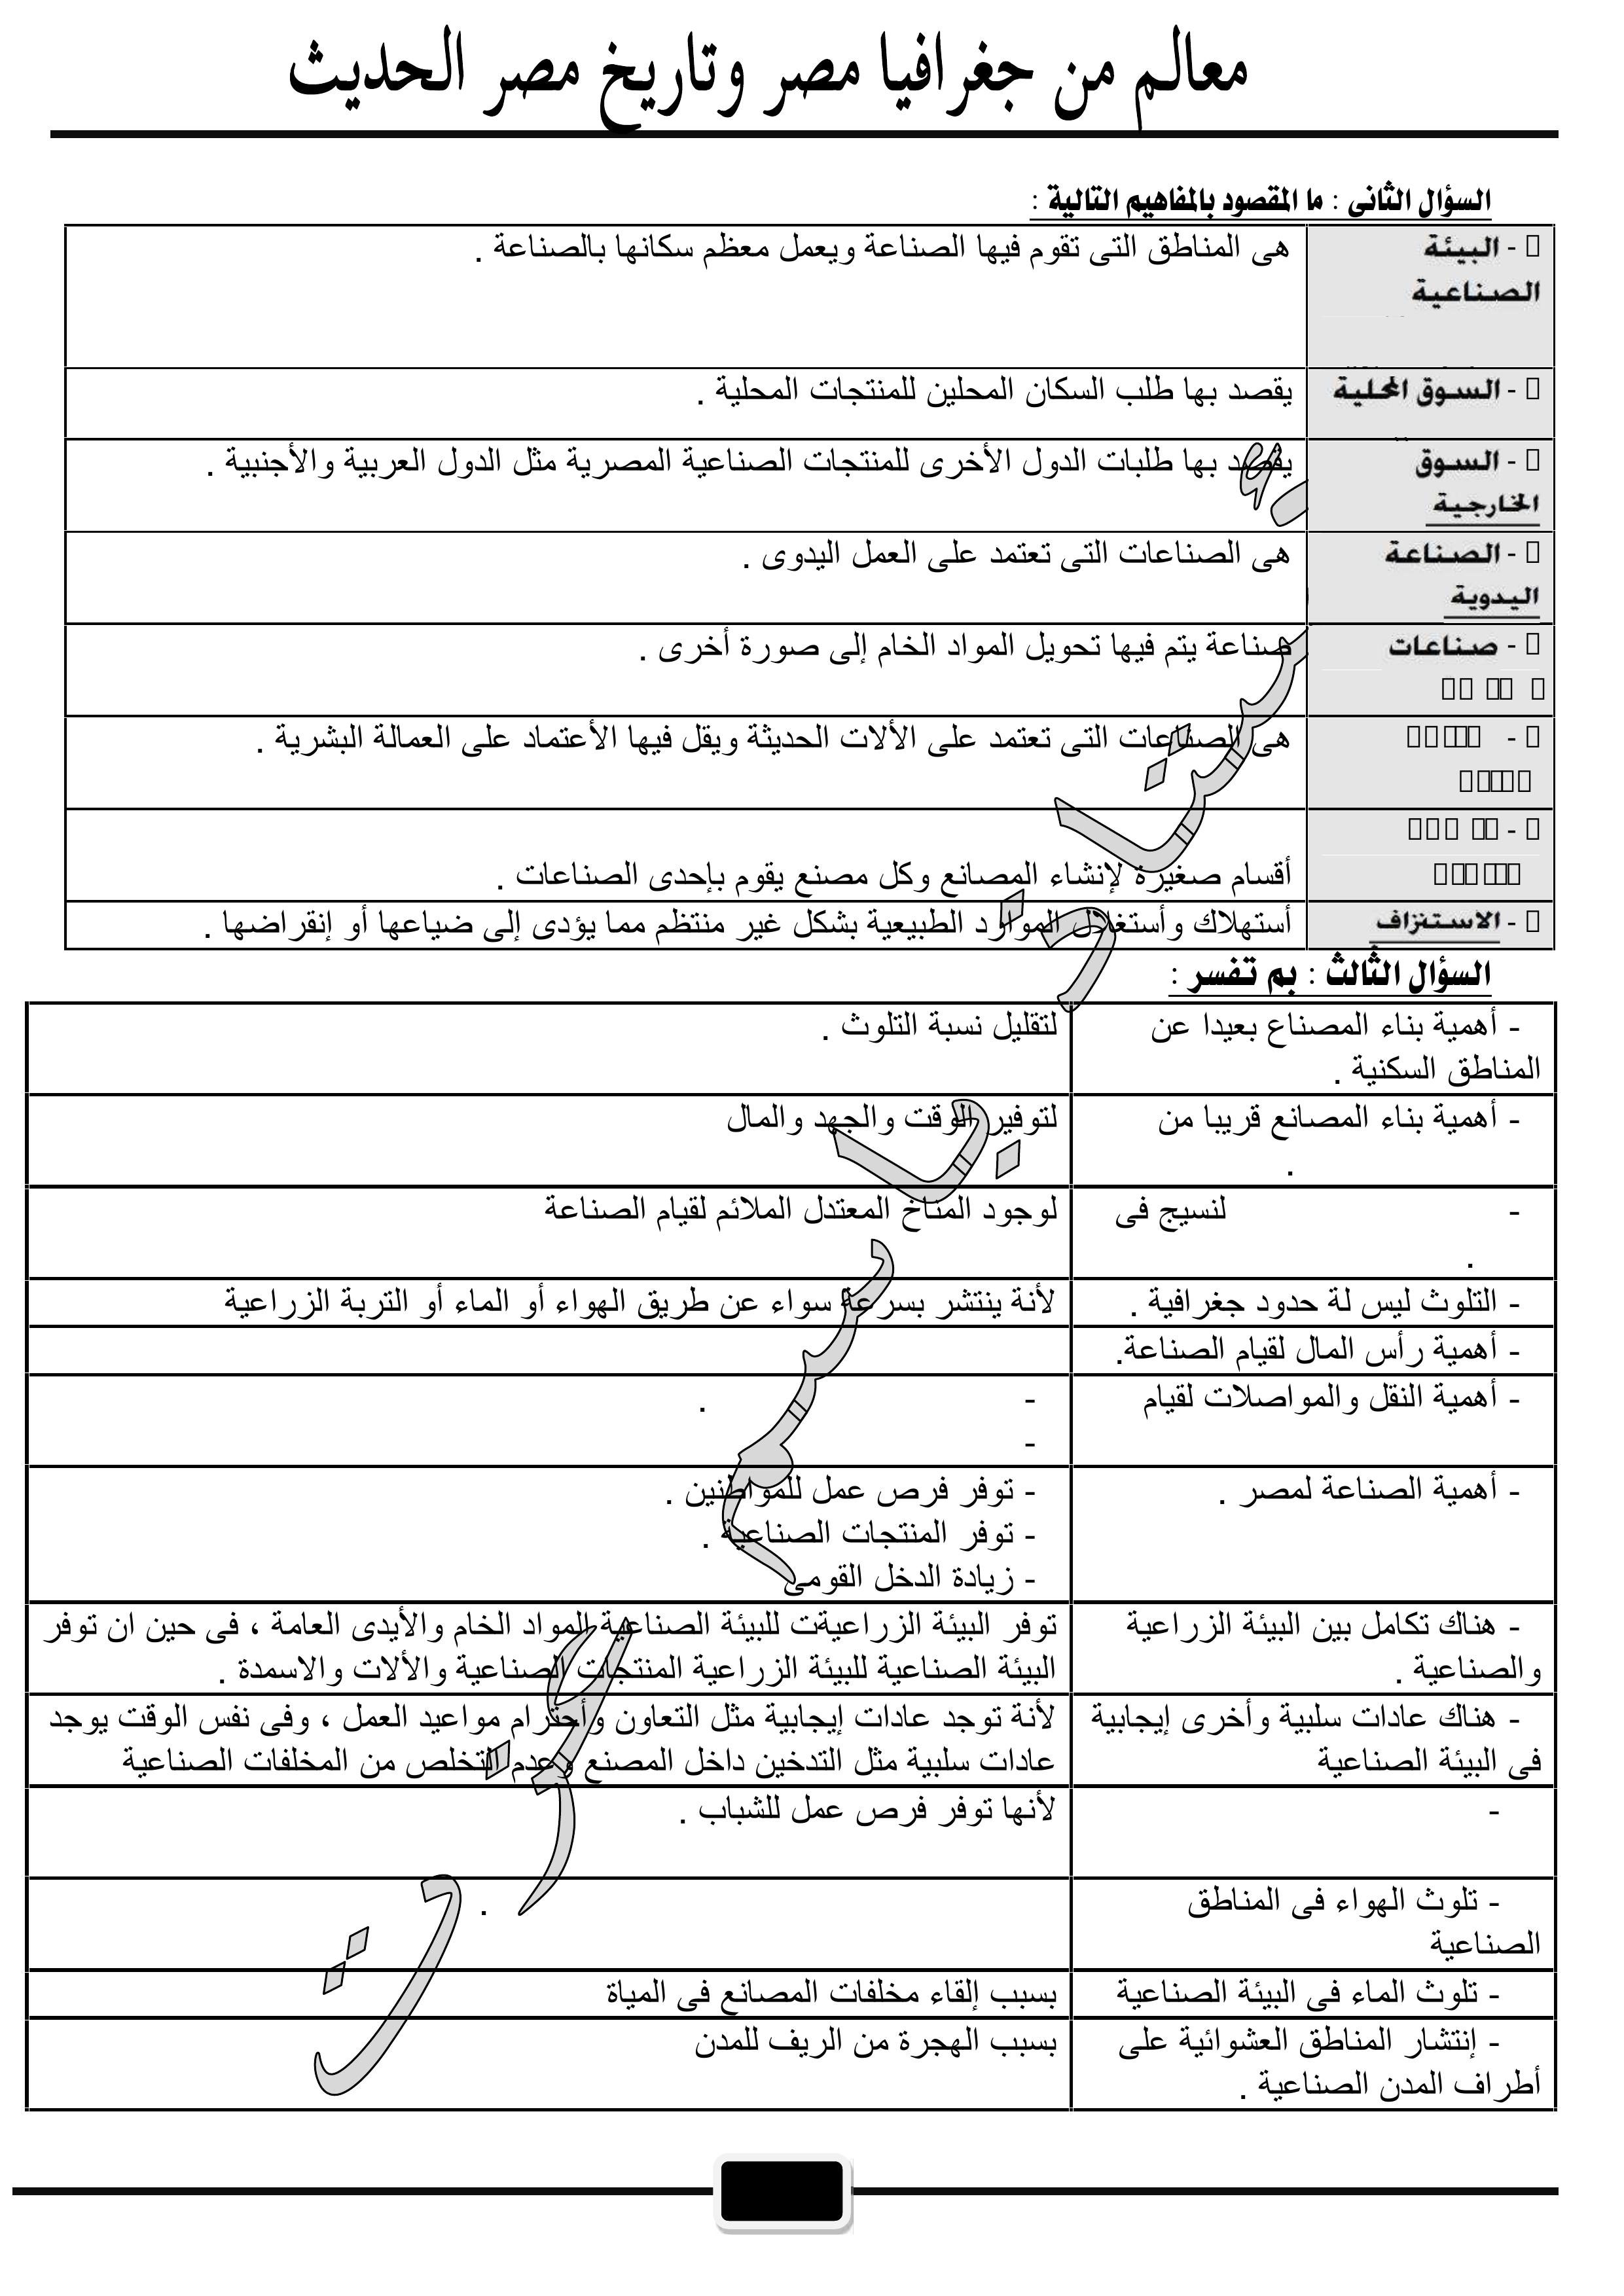 معالم من جغرافيا مصر وتاريخ مصر الحديث
السؤال الثانى : ما المقصود بالمفاهيم التالية :
- البيئة
الصناعية
هى المناطق التى تقوم فيها الصناعة ويعمل معظم سكانها بالصناعة .
- السوق المحلية
يقصد بها طلب السكان المحلين للمنتجات المحلية .
- السوق
الخارجية
يقصد بها طلبات الدول الأخرى للمنتجات الصناعية المصرية مثل الدول العربية والأجنبية .
- الصناعة
اليدوية
هى الصناعات التى تعتمد على العمل اليدوى .
- صناعات
صناعة يتم فيها تحويل المواد الخام إلى صورة أخرى .
-
هى الصناعات التى تعتمد على الألات الحديثة ويقل فيها الأعتماد على العمالة البشرية .
-
أقسام صغيرة لإنشاء المصانع وكل مصنع يقوم بإحدى الصناعات .
- الاستنزاف
أستهلاك وأستغلال الموارد الطبيعية بشكل غير منتظم مما يؤدى إلى ضياعها أو إنقراضها .
السؤال الثالث : بم تفسر :
- أهمية بناء المصناع بعيدا عن
المناطق السكنية .
لتقليل نسبة التلوث .
- أهمية بناء المصانع قريبا من
.
لتوفير الوقت والجهد والمال
- لنسيج فى
.
لوجود المناخ المعتدل الملائم لقيام الصناعة
- التلوث ليس لة حدود جغرافية .
لأنة ينتشر بسرعة سواء عن طريق الهواء أو الماء أو التربة الزراعية
- أهمية رأس المال لقيام الصناعة.
- أهمية النقل والمواصلات لقيام
- .
-
- أهمية الصناعة لمصر .
- توفر فرص عمل للمواطنين .
- توفر المنتجات الصناعية .
- زيادة الدخل القومى
- هناك تكامل بين البيئة الزراعية
والصناعية .
توفر البيئة الزراعيةت للبيئة الصناعية المواد الخام والأيدى العامة ، فى حين ان توفر
البيئة الصناعية للبيئة الزراعية المنتجات الصناعية والألات والاسمدة .
- هناك عادات سلبية وأخرى إيجابية
فى البيئة الصناعية
لأنة توجد عادات إيجابية مثل التعاون وأحترام مواعيد العمل ، وفى نفس الوقت يوجد
عادات سلبية مثل التدخين داخل المصنع وعدم التخلص من المخلفات الصناعية
-
لأنها توفر فرص عمل للشباب .
- تلوث الهواء فى المناطق
الصناعية
.
- تلوث الماء فى البيئة الصناعية
بسبب إلقاء مخلفات المصانع فى المياة
- إنتشار المناطق العشوائية على
أطراف المدن الصناعية .
بسبب الهجرة من الريف للمدن